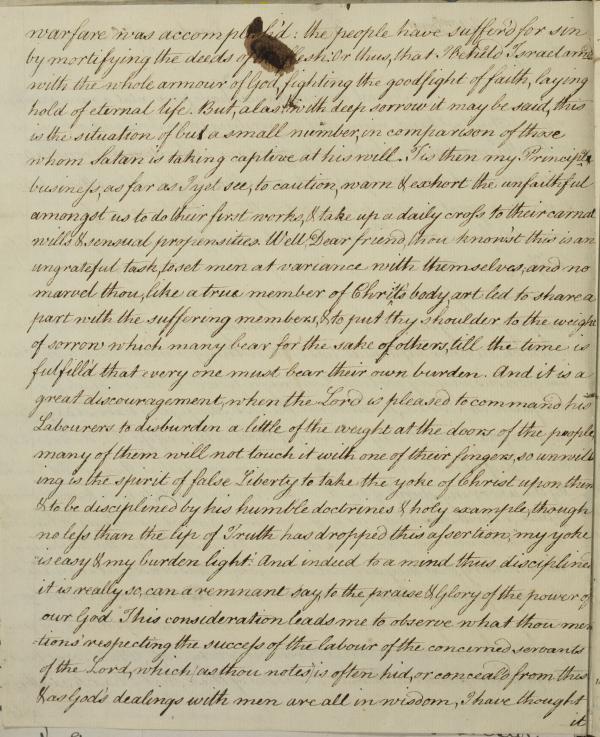 warfare was accomplish'd: the people have suffer'd for sin
by mortifying the deeds of flesh. Or thus, that I beheld Israel arm'd
with the whole armour of God, fighting the good fight of faith, laying
hold of eternal life. But, alas! with deep sorrow it may be said, this
is the situation of but a small number, in comparison of those
whom Satan is taking captive at his will. Tis then my Principle
business, as far as I yet see, to caution, warn & exhort the unfaithful
amongst us to do their first works, & take up a daily cross to their carnal
will's & sensual propensities. Well Dear friend, thou know'st this is an
ungrateful task, to set men at variance with themselves, and no
marvel thou, like a true member of Christ's body, art led to share a
part with the suffering members, & to put thy shoulder to the weight
of sorrow which many bear for the sake of others, till the time is
fulfill'd that every one must bear their own burden. And it is a
great discouragement, when the Lord is pleased to command his
Labourers to disburden a little of the weight at the doors of the people,
many of them will not touch it with one of their fingers, so unwill
ing is the spirit of false Liberty to take the yoke of Christ upon them
& to be disciplined by his humble doctrines & holy example, though
no less than the lip of Truth has dropped this assertion, "my yoke
is easy & my burden light." And indeed to a mind thus disciplined
it is really so, can a remnant say, to the praise & Glory of the power of
our God. This consideration leads me to observe what thou men
-tions respecting the success of the labour of the concerned servants
of the Lord, which (as thou notes) is often hid, or conceal'd from this
& as God's dealings with men are all in wisdom, I have thought
it